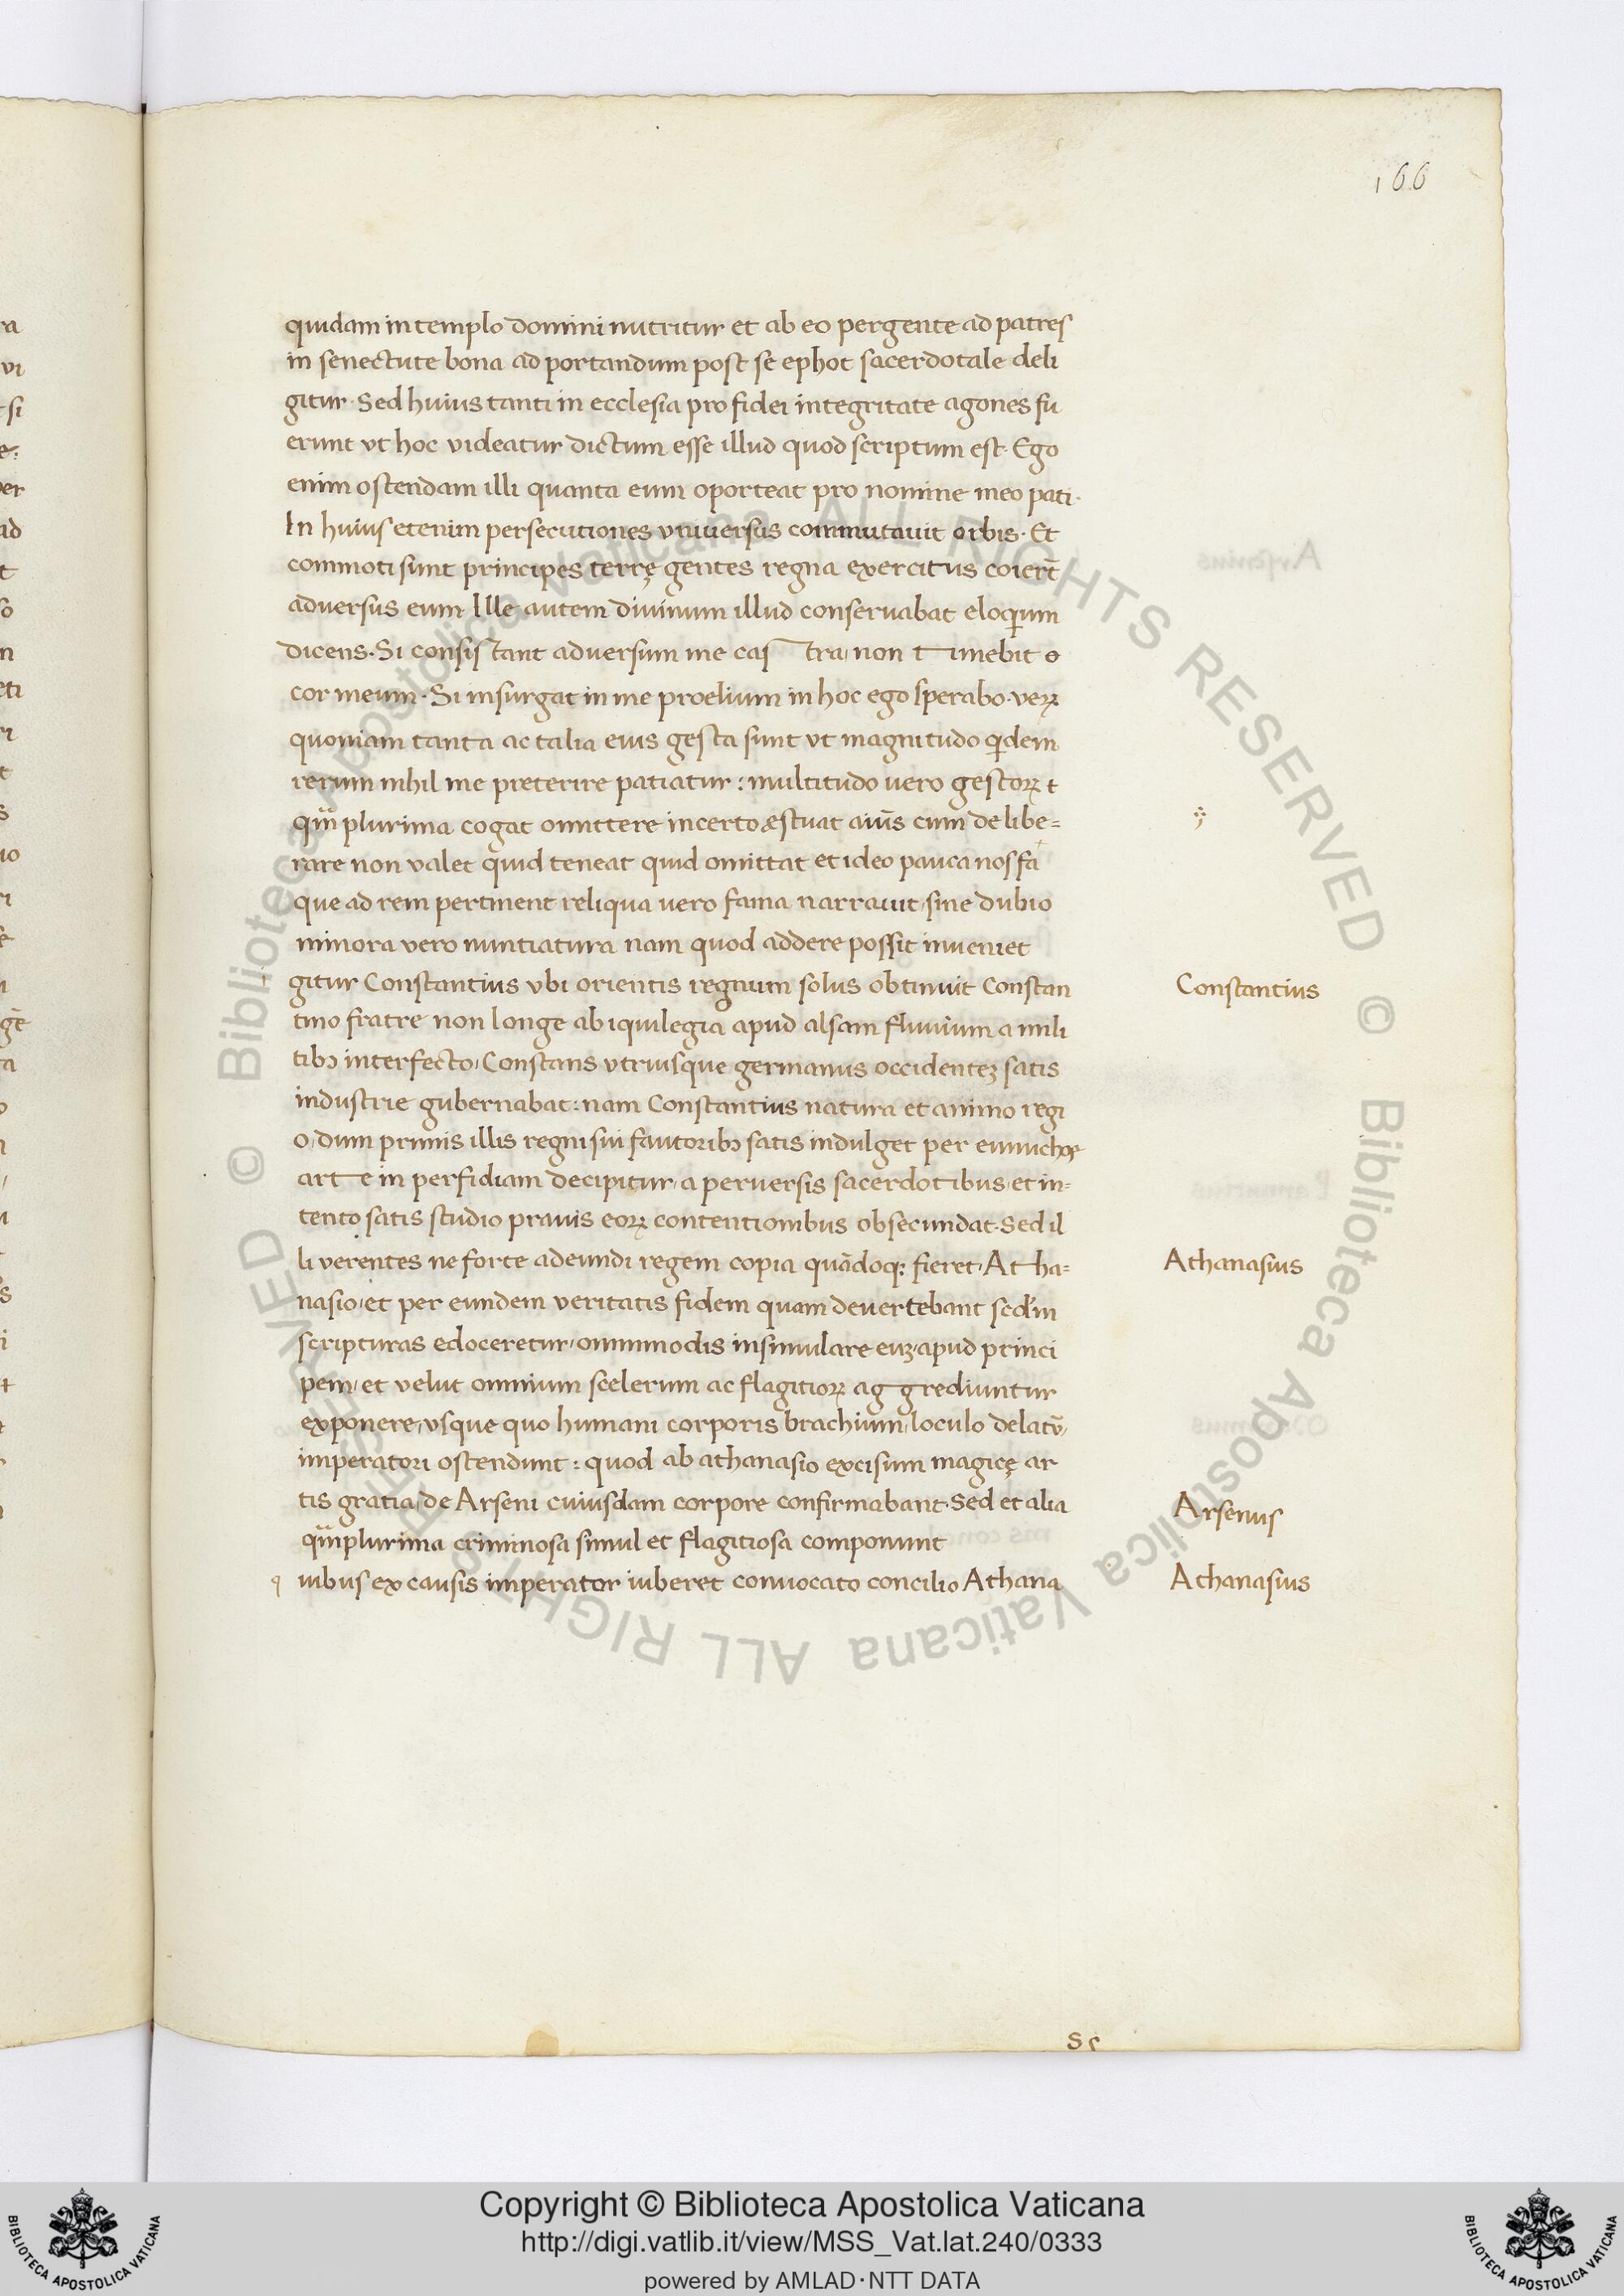 166
quidam in templo domini nutritur et ab eo pergente ad patres
in senectute bona ad portandum post se ephot sacerdotale deli
gitur · Sed huius tanti in ecclesia pro fidei integritate agones fu
erunt vt hoc videatur dictum esse illud quod scriptum est · Ego
enim ostendam illi quanta eum oporteat pro nomine meo pati ·
In huius etenim persecutiones vniuersus commutauit orbis · Et
commoti sunt principes terrę gentes regna exercitus coiert̄
aduersus eum Ille autem diuinum illud conseruabat eloqium
dicens · Si consistant aduersum me castra non timebit
cor meum · Si insurgat in me proelium in hoc ego sperabo · verꝝ
quoniam tanta ac talia eius gesta sunt vt magnitudo qidem
rerum nihil me preterire patiatur : multitudo uero gestorꝝ
qm̄ plurima cogat omittere incerto ęstuat aiūs cum delibe=
rare non valet quid teneat quid omittat et ideo pauca nos fa
que ad rem pertinent reliqua uero fama narrauit sine dubio
minora vero nuntiatura nam quod addere possit inueniet
gitur Constantius vbi orientis regnum solus obtinuit Constan
Constantius
tino fratre non longe ab iquilegia apud alsam fluuium a mili
tibꝫ interfecto Constans vtriusque germanus occidentez satis
industrie gubernabat : nam Constantius natura et animo regi
o dum primis illis regni sui fautoribꝫ satis indulget per eunuchoꝝ
arte in perfidiam decipitur a peruersis sacerdotibus et in-
tento satis studio prauis eorꝝ contentionibus obsecundat · Sed il
li verentes ne forte adeundi regem copia quādoq; fieret Atha=
Athanasius
nasio et per eundem veritatis fidem quam deuertebant sed'm
scripturas edoceretur omnimodis insimulare euz apud princi
pem et velut omnium scelerum ac flagitiorꝝ aggrediuntur
exponere vsque quo humani corporis brachium loculo delatū
imperatori ostendunt : quod ab athanasio excisum magicę ar
tis gratia de Arseni cuiusdam corpore confirmabant · Sed et alia
Arsenius
qm̄plurima criminosa simul et flagitiosa componunt
q uibus ex causis imperator iuberet conuocato concilio Athana
Athanasius
Copyright © Biblioteca Apostolica Vaticana
http://digi.vatlib.it/view/MSS_Vat.lat.240/0333
powered by AMLAD·NTT DATA
BIBLIOTECA APOSTOLICA VATICANA
BIBLIOTECA APOSTOLICA VATICANA
© Biblioteca Apostolica Vaticana ALL RIGHTS RESERVED © Biblioteca Apostolica Vaticana ALL RIGHTS RESERVED